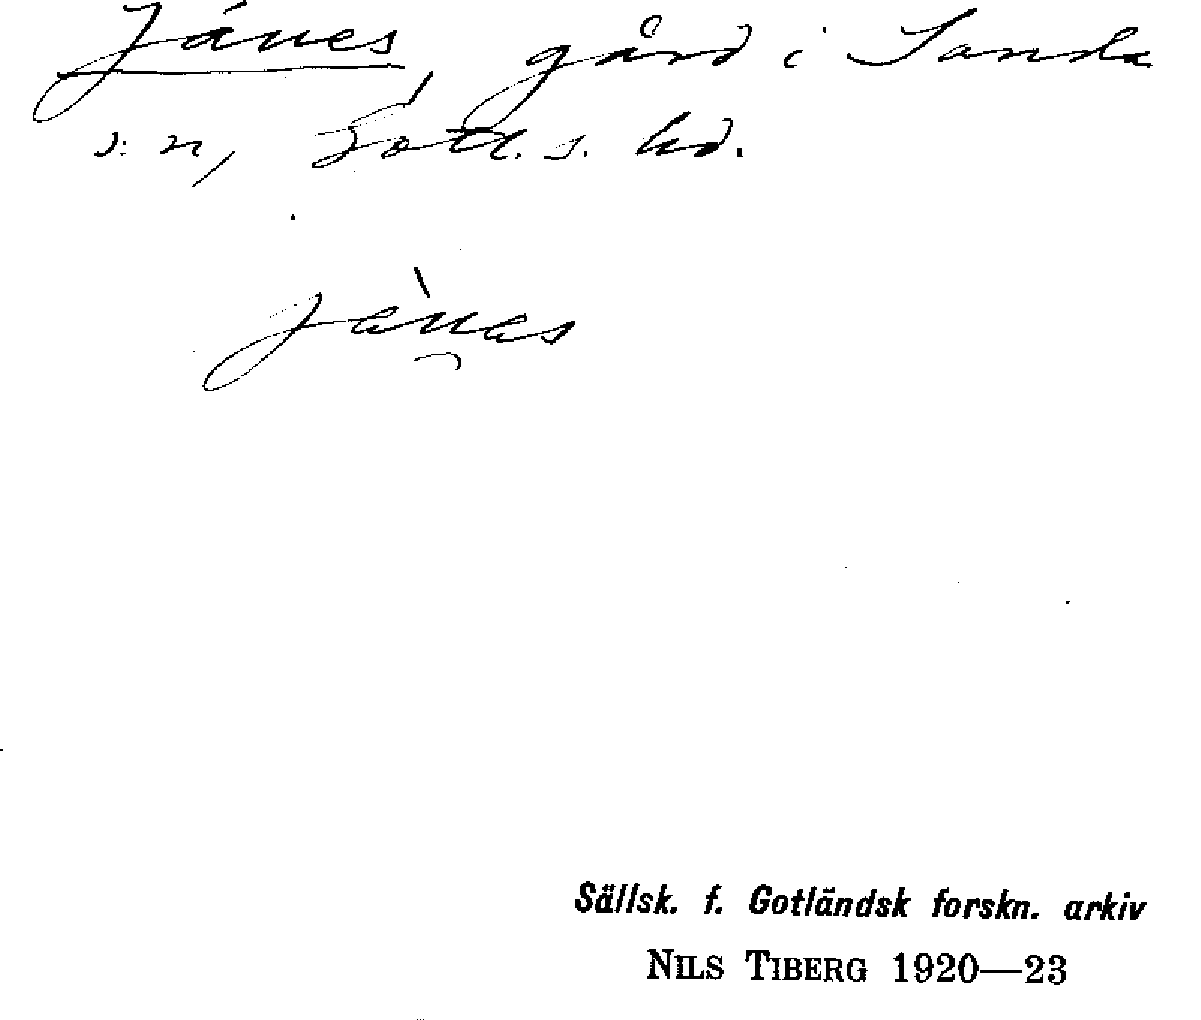 Jánes, gård i Sanda
s:n, Gotl. s. hd.
jànas
Sällsk. f. Gotländsk forskn. arkiv
NILS TIBERG 1920—23